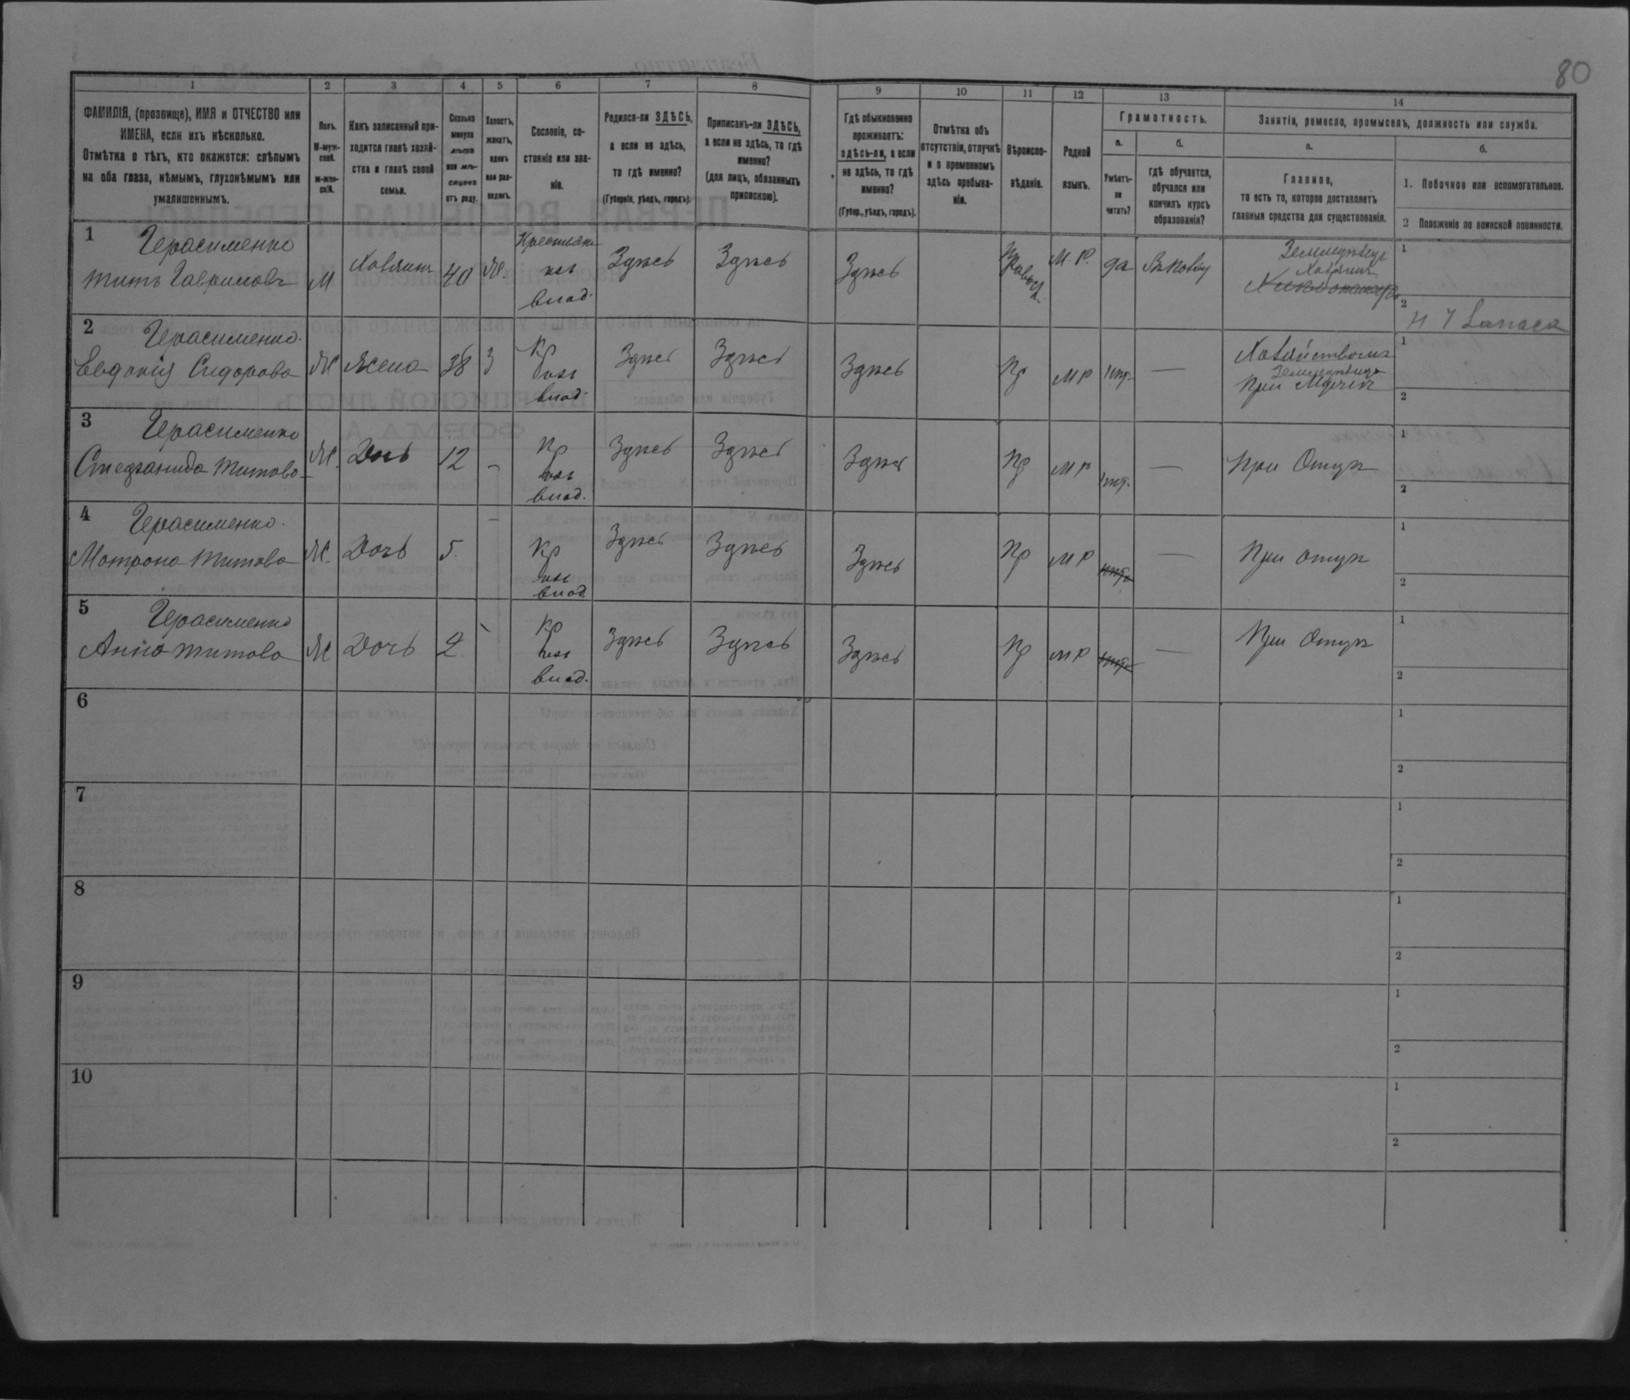 80
1 2 3 4 5 6 7 8 9 10 11 12 13 14
ФАМИЛІЯ, (прозвище), ИМЯ и ОТЧЕСТВО или
ИМЕНА, если ихъ нѣсколько.
Отмѣтка о тѣхъ, кто окажется: слѣпымъ
на оба глаза, нѣмымъ, глухонѣмымъ или
умалишеннымъ.
Полъ.
М-муж-
ской.
Ж-жен-
скій.
Какъ записанный при-
ходится главѣ хозяй-
ства и главѣ своей
семьи.
Сколько
минуло
лѣтъ
или мѣ-
сяцевъ
отъ роду.
Холостъ,
женатъ,
вдовъ
или раз-
веденъ.
Сословіе, со-
стояніе или зва-
ніе.
Родился-ли ЗДѢСЬ,
а если не здѣсь,
то гдѣ именно?
(Губернія, уѣздъ, городъ).
Приписанъ-ли ЗДѢСЬ,
а если не здѣсь, то гдѣ
именно?
(для лицъ, обязанныхъ
припискою).
Гдѣ обыкновенно
проживаетъ:
здѣсь-ли, а если
не здѣсь, то гдѣ
именно?
(Губер., уѣздъ, городъ).
Отмѣтка объ
отсутствіи, отлучкѣ
и о временномъ
здѣсь пребыва-
ніи.
Вѣроиспо-
вѣданіе.
Родной
языкъ.
Грамотность.
а.
Умѣетъ-
ли
читать?
б.
гдѣ обучается,
обучался или
кончилъ курсъ
образованія?
Занятія, ремесло, промыселъ, должность или служба.
а.
Главное,
то есть то, которое доставляетъ
главныя средства для существованія.
б.
1. Побочное или вспомогательное.
2 Положеніе по воинской повинности.
1 Герасименко
Титъ Гавриловъ М Хозяинъ 40 Ж. Крестьянин
влад. Здѣсь Здѣсь Здѣсь М. Р. да
Земледѣлецъ
Хозяинъ
1
2
2 Герасименко
Евдокія Сидорова Ж Жена 38 З Кр
влад. Здѣсь Здѣсь Здѣсь Пр МР нѣт —
Земледѣлецъ
При Мужѣ
1
2
3 Герасименко
Степанида Титова Ж Дочь 12 — Кр
влад. Здѣсь Здѣсь Здѣсь Пр МР нѣт. — При Отцѣ
1
2
4 Герасименко
Матрона Титова Ж Дочь 5. — Кр
влад Здѣсь Здѣсь Здѣсь Пр МР — При отцѣ
1
2
5 Герасименко
Анна Титова Ж Дочь 2 Кр
влад. Здѣсь Здѣсь Здѣсь Пр МР — При Отцѣ
1
2
6
1
2
7
1
2
8
1
2
9
1
2
10
1
2